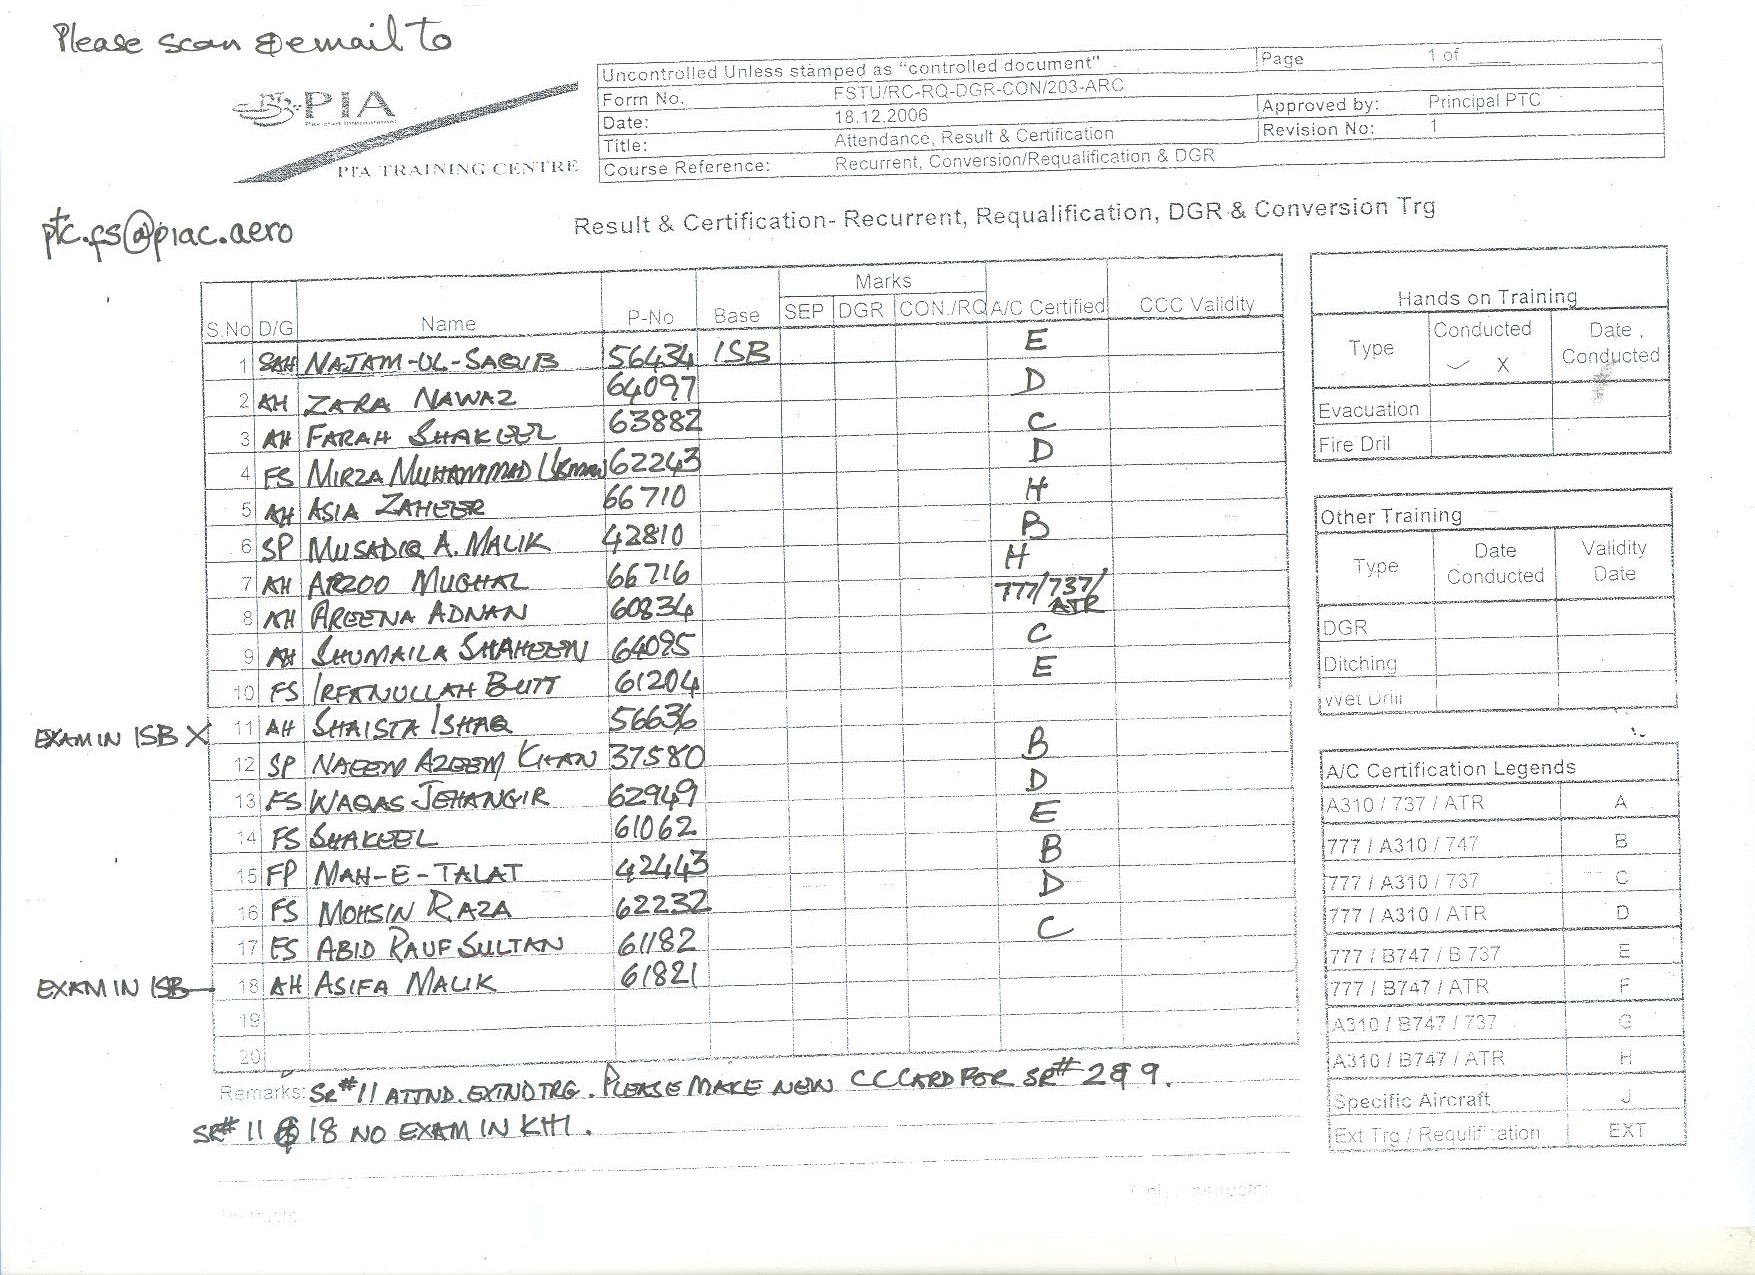 Please scan & email to
PIA
PIA TRAINING CENTRE
Uncontrolled Unless stamped as "controlled document"
Page 1 of ____
Form No. FSTU/RC-RQ-DGR-CON/203-ARC
Date: 18.12.2006
Approved by: Principal PTC
Title: Attendance, Result & Certification
Revision No: 1
Course Reference: Recurrent, Conversion/Requalification & DGR
ptc.fs@piac.aero
Result & Certification- Recurrent, Requalification, DGR & Conversion Trg
Marks
S.No D/G Name P-No Base SEP DGR CON./RQ A/C Certified CCC Validity
1 SAH NAJAM-UL-SAQIB 56434 ISB E
2 AH ZARA NAWAZ 64097 D
3 AH FARAH SHAKEEL 63882 C
4 FS MIRZA MUHAMMAD Usman 62243 D
5 AH ASIA ZAHEER 66710 H
6 SP MUSADIQ A. MALIK 42810 B
7 AH ARZOO MUGHAL 66716 H
8 AH AREENA ADNAN 60834 777/737/
ATR
9 AH SHUMAILA SHAHEEN 64095 C
10 FS IRFANULLAH BUTT 61204 E
EXAM IN ISB X 11 AH SHAISTA ISHAQ 56636
12 SP NAEEM AZEEM KHAN 37580 B
13 FS WAQAS JEHANGIR 62949 D
14 FS SHAKEEL 61062 E
15 FP MAH-E-TALAT 42443 B
16 FS MOHSIN RAZA 62232 D
17 FS ABID RAUF SULTAN 61182 C
EXAM IN ISB 18 AH ASIFA MALIK 61821
19
20
Remarks: SR#11 ATTND. EXTND TRG. PLEASE MAKE NEW CC CARD FOR SR# 2 & 9.
SR# 11 & 18 NO EXAM IN KHI.
Hands on Training
Type Conducted Date
X Conducted
Evacuation
Fire Dril
Other Training
Type Date Conducted Validity Date
DGR
Ditching
Wet Drill
A/C Certification Legends
A310 / 737 / ATR A
777 / A310 / 747 B
777 / A310 / 737 C
777 / A310 / ATR D
777 / B747 / B 737 E
777 / B747 / ATR F
A310 / B747 / 737 G
A310 / B747 / ATR H
Specific Aircraft J
Ext Trg / Requlification EXT